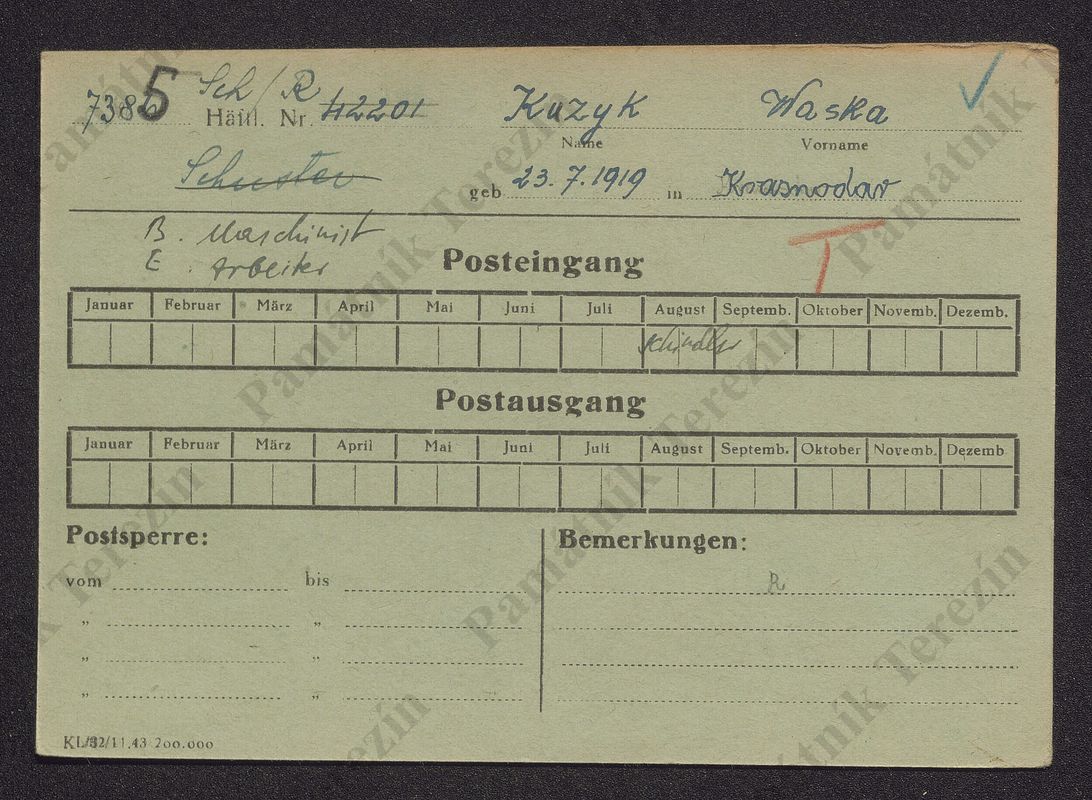 7386 5 Sch/R
Häftl. Nr. 42201 Kuzyk Waska
Name Vorname
Schuster geb. 23.7.1919 in Krasnodar
B. Maschinist
E. Arbeiter
T
Posteingang
Januar Februar März April Mai Juni Juli August Septemb. Oktober Novemb. Dezemb.
Schindler
Postausgang
Januar Februar März April Mai Juni Juli August Septemb. Oktober Novemb. Dezemb
Postsperre: Bemerkungen:
vom bis R
„ „
„ „
„ „
KL/32/11.43 200.000
Památník Terezín